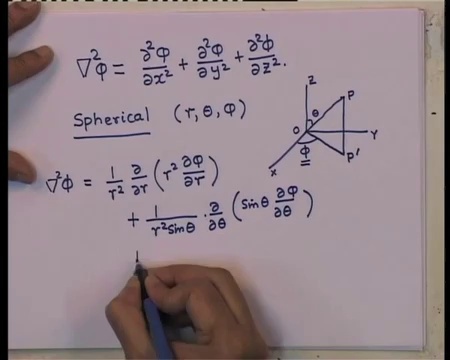 ∇²φ = ∂²φ/∂x² + ∂²φ/∂y² + ∂²φ/∂z².
Spherical (r, θ, φ)
Z
P
θ
O
Y
φ
P'
X
∇²φ = 1/r² ∂/∂r (r² ∂φ/∂r)
+ 1/r²sinθ · ∂/∂θ (sinθ ∂φ/∂θ)